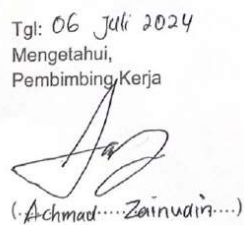 Tgl: 06 Juli 2024
Mengetahui,
Pembimbing Kerja
(.Achmad.....Zainudin....)